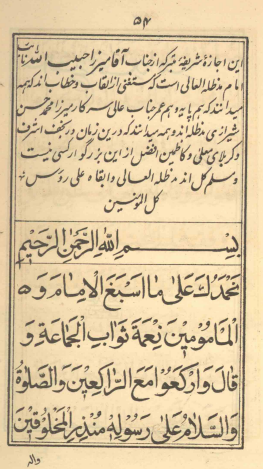 ۵۴
این اجازۀ شریفۀ متبرکه از جناب آقا میرزا حبیب الله
امام مدظله العالی است که مستغنی از القاب و خطاب اند که همه
میدانند که هم پایه و هم عصر جناب عالی سرکار میرزا محمد حسن
شیرازی مدظله اند و همه میدانند که درین زمان در نجف اشرف
و کربلای معلی و کاظمین افضل از این بزرگوار کسی نیست
و مسلم کل اند مدظله العالی و ابقاه علی رؤس
کل المؤمنین
بِسْمِ اللهِ الرَّحْمٰنِ الرَّحِیْمِ
نَحْمَدُكَ عَلٰی مَا اَسْبَغَ الْاِمَامَ وَ
الْمَامُوْمِیْنَ نِعْمَةَ ثَوَابِ الْجَمَاعَةِ وَ
قَالَ وَارْكَعُوْا مَعَ الرَّاكِعِیْنَ وَالصَّلٰوةُ
وَالسَّلَامُ عَلٰی رَسُوْلِهِ مُنْذِرِ الْمَخْلُوْقِیْنَ
واله